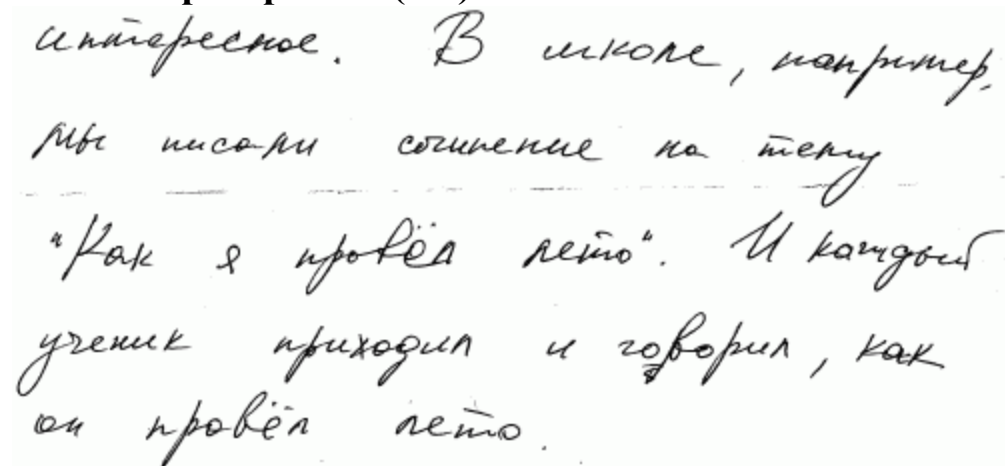 интересное. В школе, например,
мы писали сочинение на тему
"Как я провёл лето". И каждый
ученик приходил и говорил, как
он провёл лето.